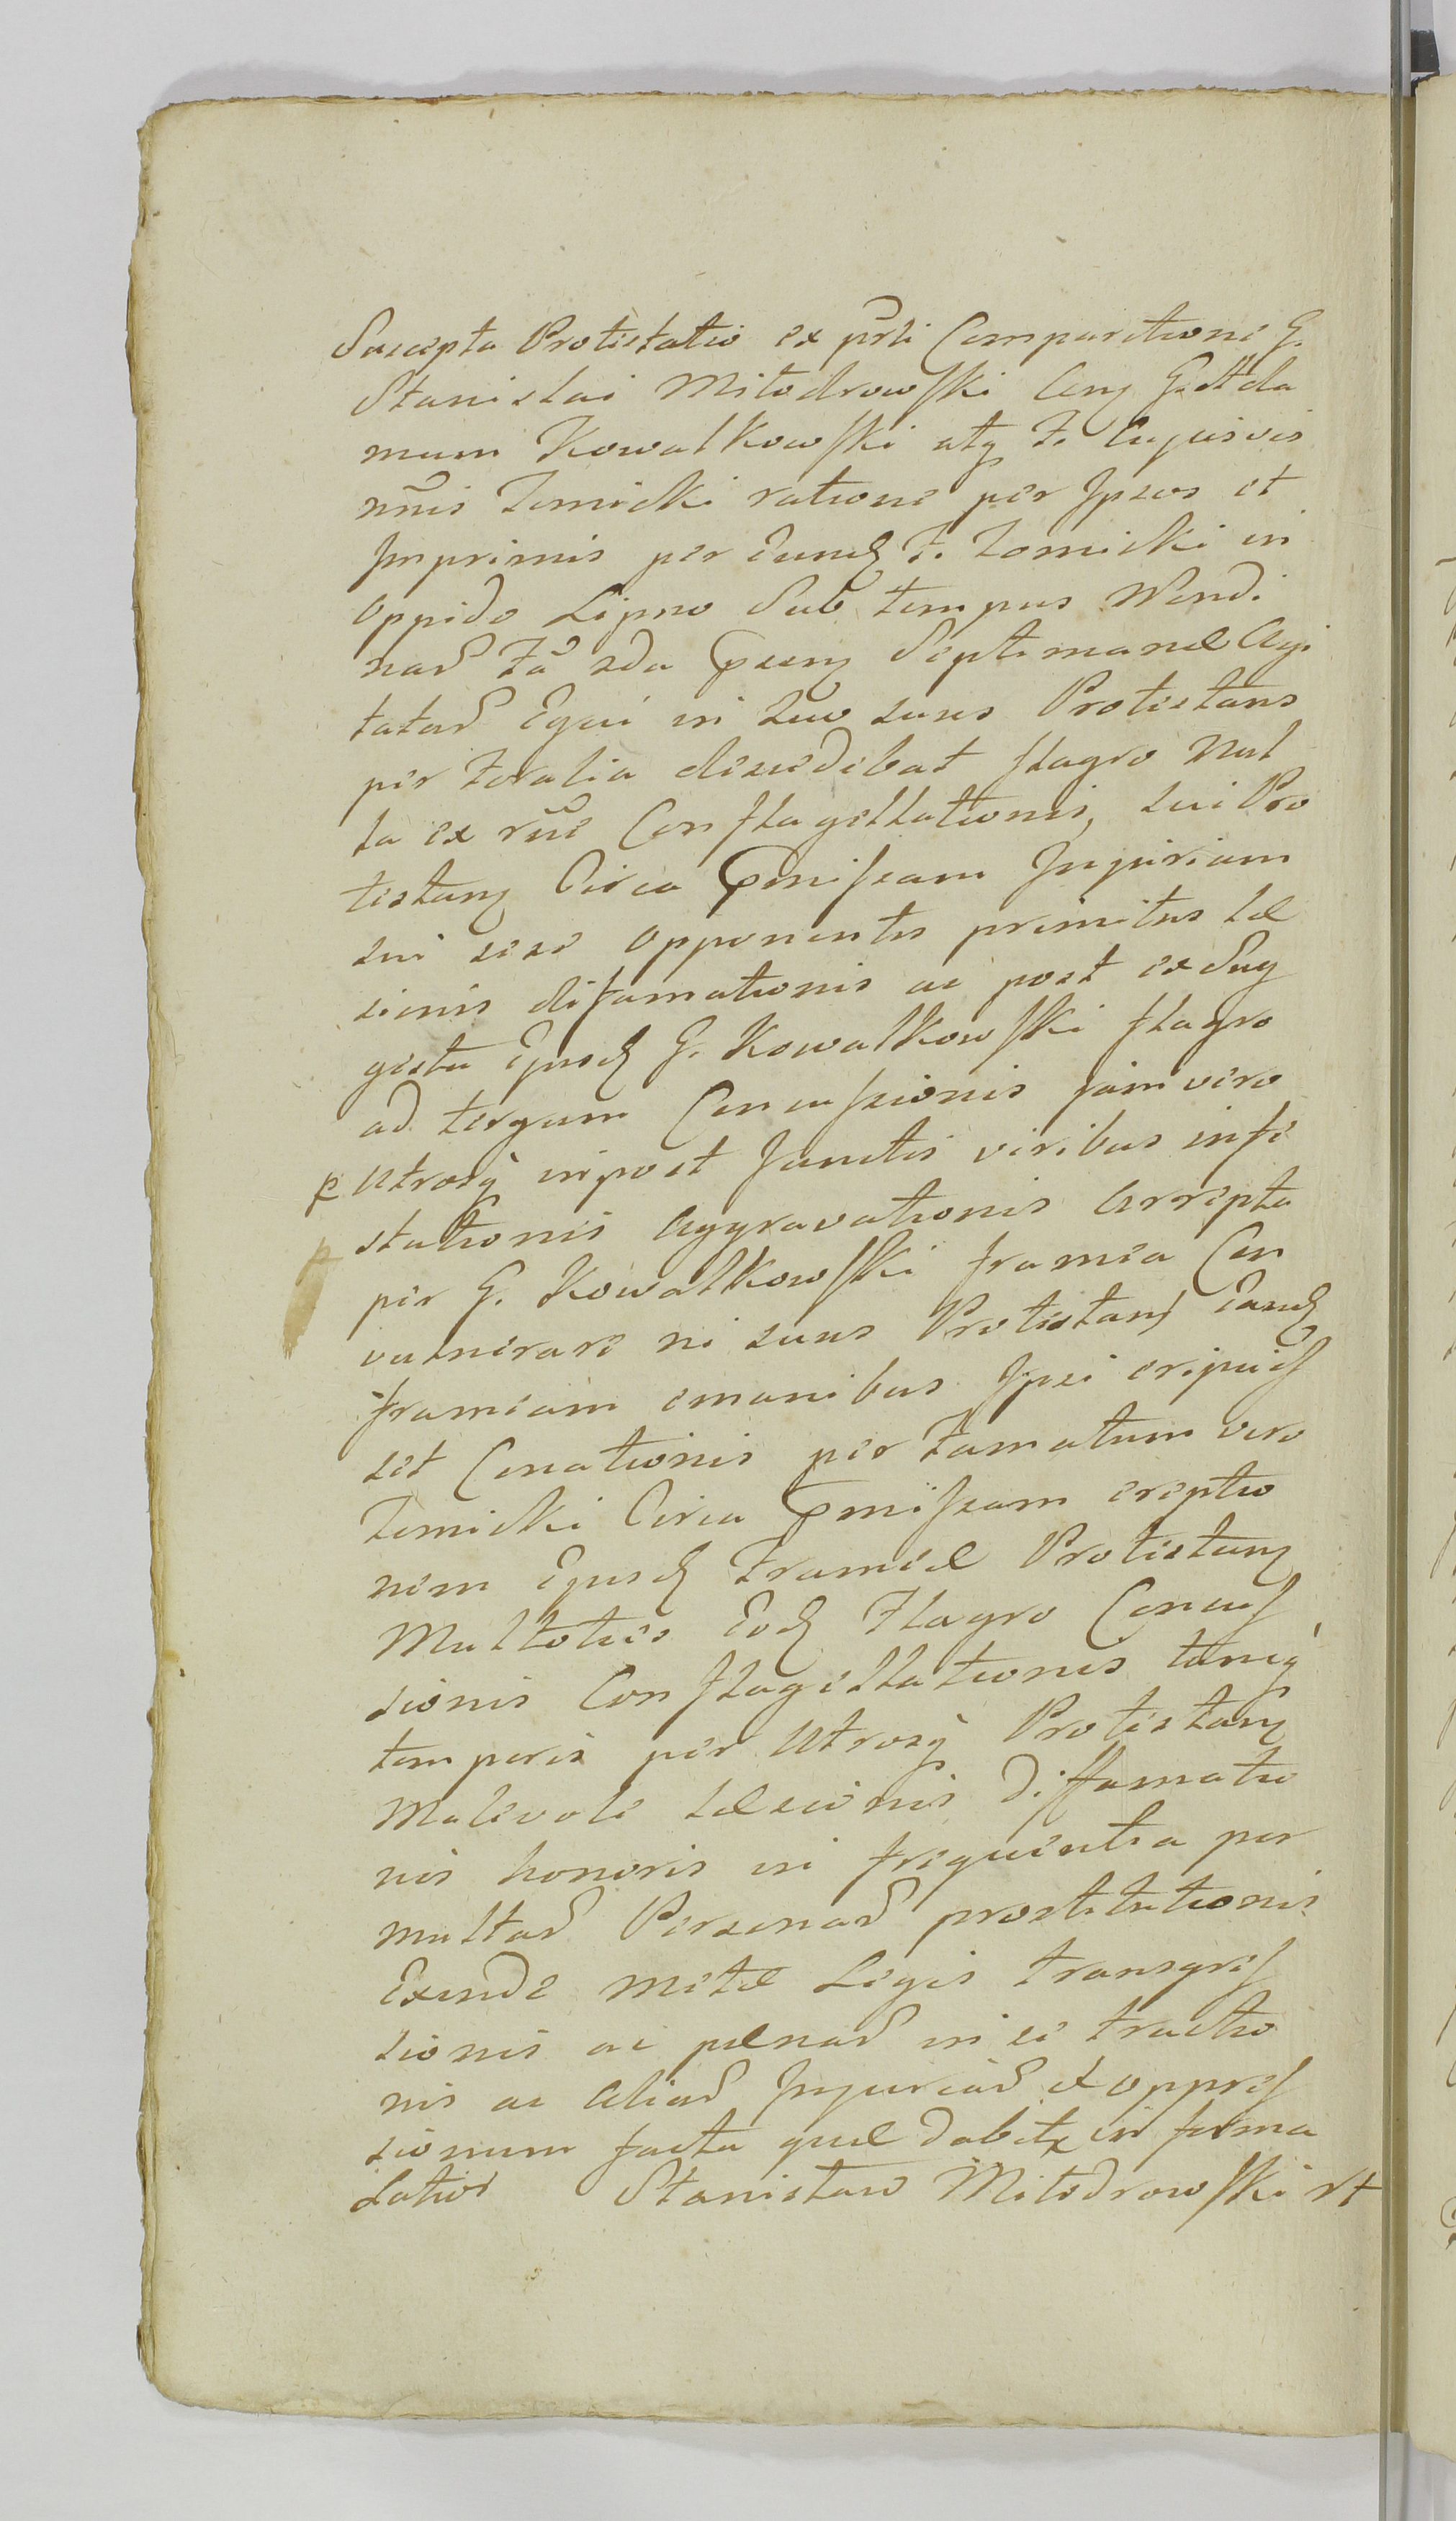 Suscepta Protestatio ex prsti Comparitione G.
Stanislai Miłodrowski Cung G. Ada
mum Kowalkowski atq F. Cujusvis
nnis Zomicki ratione per Ipsos et
Inprimis per eund F. Zomicki in
Oppido Lipno Sub tempus Nendi
nar Fa 2da psens Septimanæ Agi
tatar Equi in suo suus Protestans
per Foralia discedebat flagro Nul
la ex rne Conflagellationis, sui Pro
testans Circa pmissam Injuriam
sui sese opponentis primitus læ
sionis difamationis ac post ex Sug
gestu Ejusd G. Kowalkowski flagro
ad tergum Concussionis jam vero
p Utrosq inpost Junctis viribus infe
stationis Aggravationis Arrepta
per G. Kowalkowski framea Con
vulnerare ni suus Protestans Eand
frameam emanibus Ipsi eripuis
set Conationis per Famatum vero
Zomicki Circa pmissam ereptio
nem Ejusd Frameæ Protestans
Multoties Eod Flagro Concus
sionis Conflagellationis tuncq
temporis per Utrosq Protestans
Malevole læsionis diffamatio
nis honoris in frequentia per
multar Personar prostitutionis
Exinde metæ Legis transgres
sionis ac pænar in se tractio
nis ac Aliar Injuriar et oppres
sionum facta quæ dabitr in forma
Latiori Stanisław Miłodrowski rt